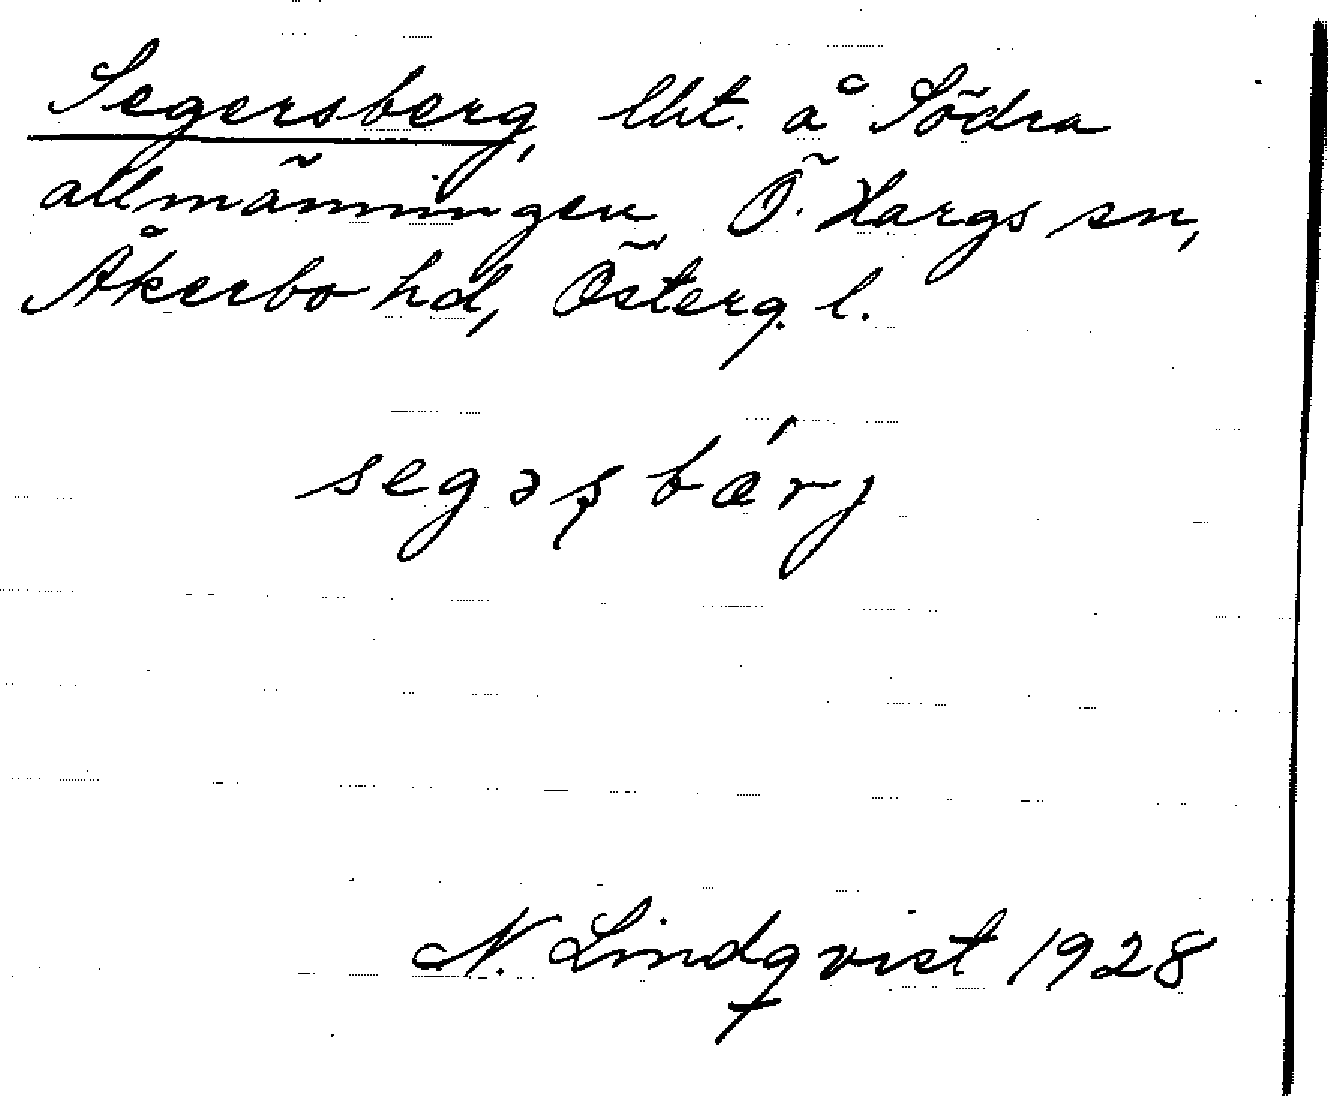 Segersberg, lht. å Södra
allmänningen Ö. Hargs sn,
Åkerbo hd, Österg. l.
segəʂbǽrj
N. Lindqvist 1928